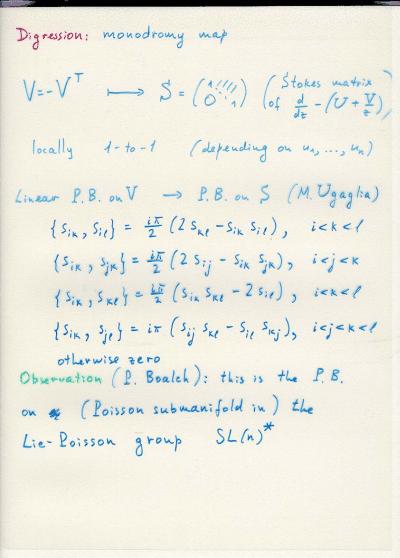 Digression: monodromy map
V=-V^T ↦ S = (1 //// 0 1) (Stokes matrix of d/dz - (U + V/z))
locally 1-to-1 (depending on u₁, ..., uₙ)
Linear P.B. on V → P.B. on S (M. Ugaglia)
{s_ik, s_il} = iπ/2 (2 s_kl - s_ik s_il), i<k<l
{s_ik, s_jk} = iπ/2 (2 s_ij - s_ik s_jk), i<j<k
{s_ik, s_kl} = iπ/2 (s_ik s_kl - 2 s_il), i<k<l
{s_ik, s_jl} = iπ (s_ij s_kl - s_il s_kj), i<j<k<l
otherwise zero
Observation (P. Boalch): this is the P.B.
on (Poisson submanifold in) the
Lie-Poisson group SL(n)*